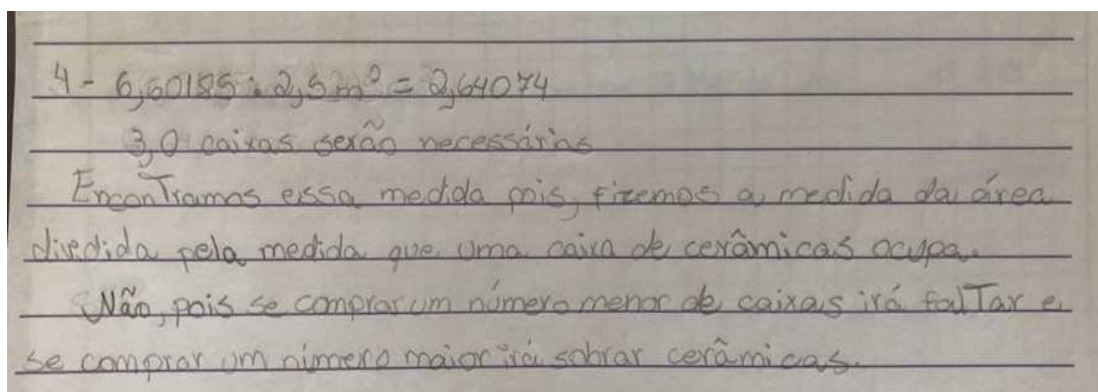 4 - 6,60185 : 2,5 m² = 2,64074
3,0 caixas serão necessárias
Encontramos essa medida pois, fizemos a medida da área
dividida pela medida que uma caixa de cerâmicas ocupa.
Não, pois se comprar um número menor de caixas irá faltar e
se comprar um número maior irá sobrar cerâmicas.